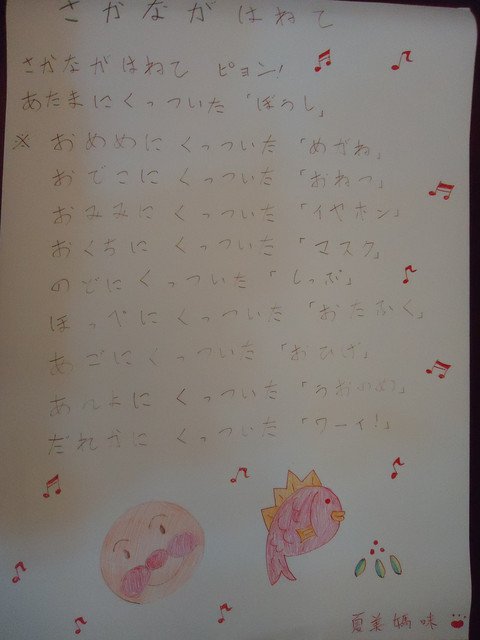 さかながはねて
さかながはねて ピョン!
あたまにくっついた「ぼうし」
※ おめめに くっついた 「めがね」
おでこに くっついた 「おねつ」
おみみに くっついた 「イヤホン」
おくちに くっついた 「マスク」
のどに くっついた 「しっぷ」
ほっぺに くっついた 「おたふく」
あごに くっついた 「おひげ」
あんよに くっついた
だれかに くっついた 「ワーイ!」
夏葉媽咪